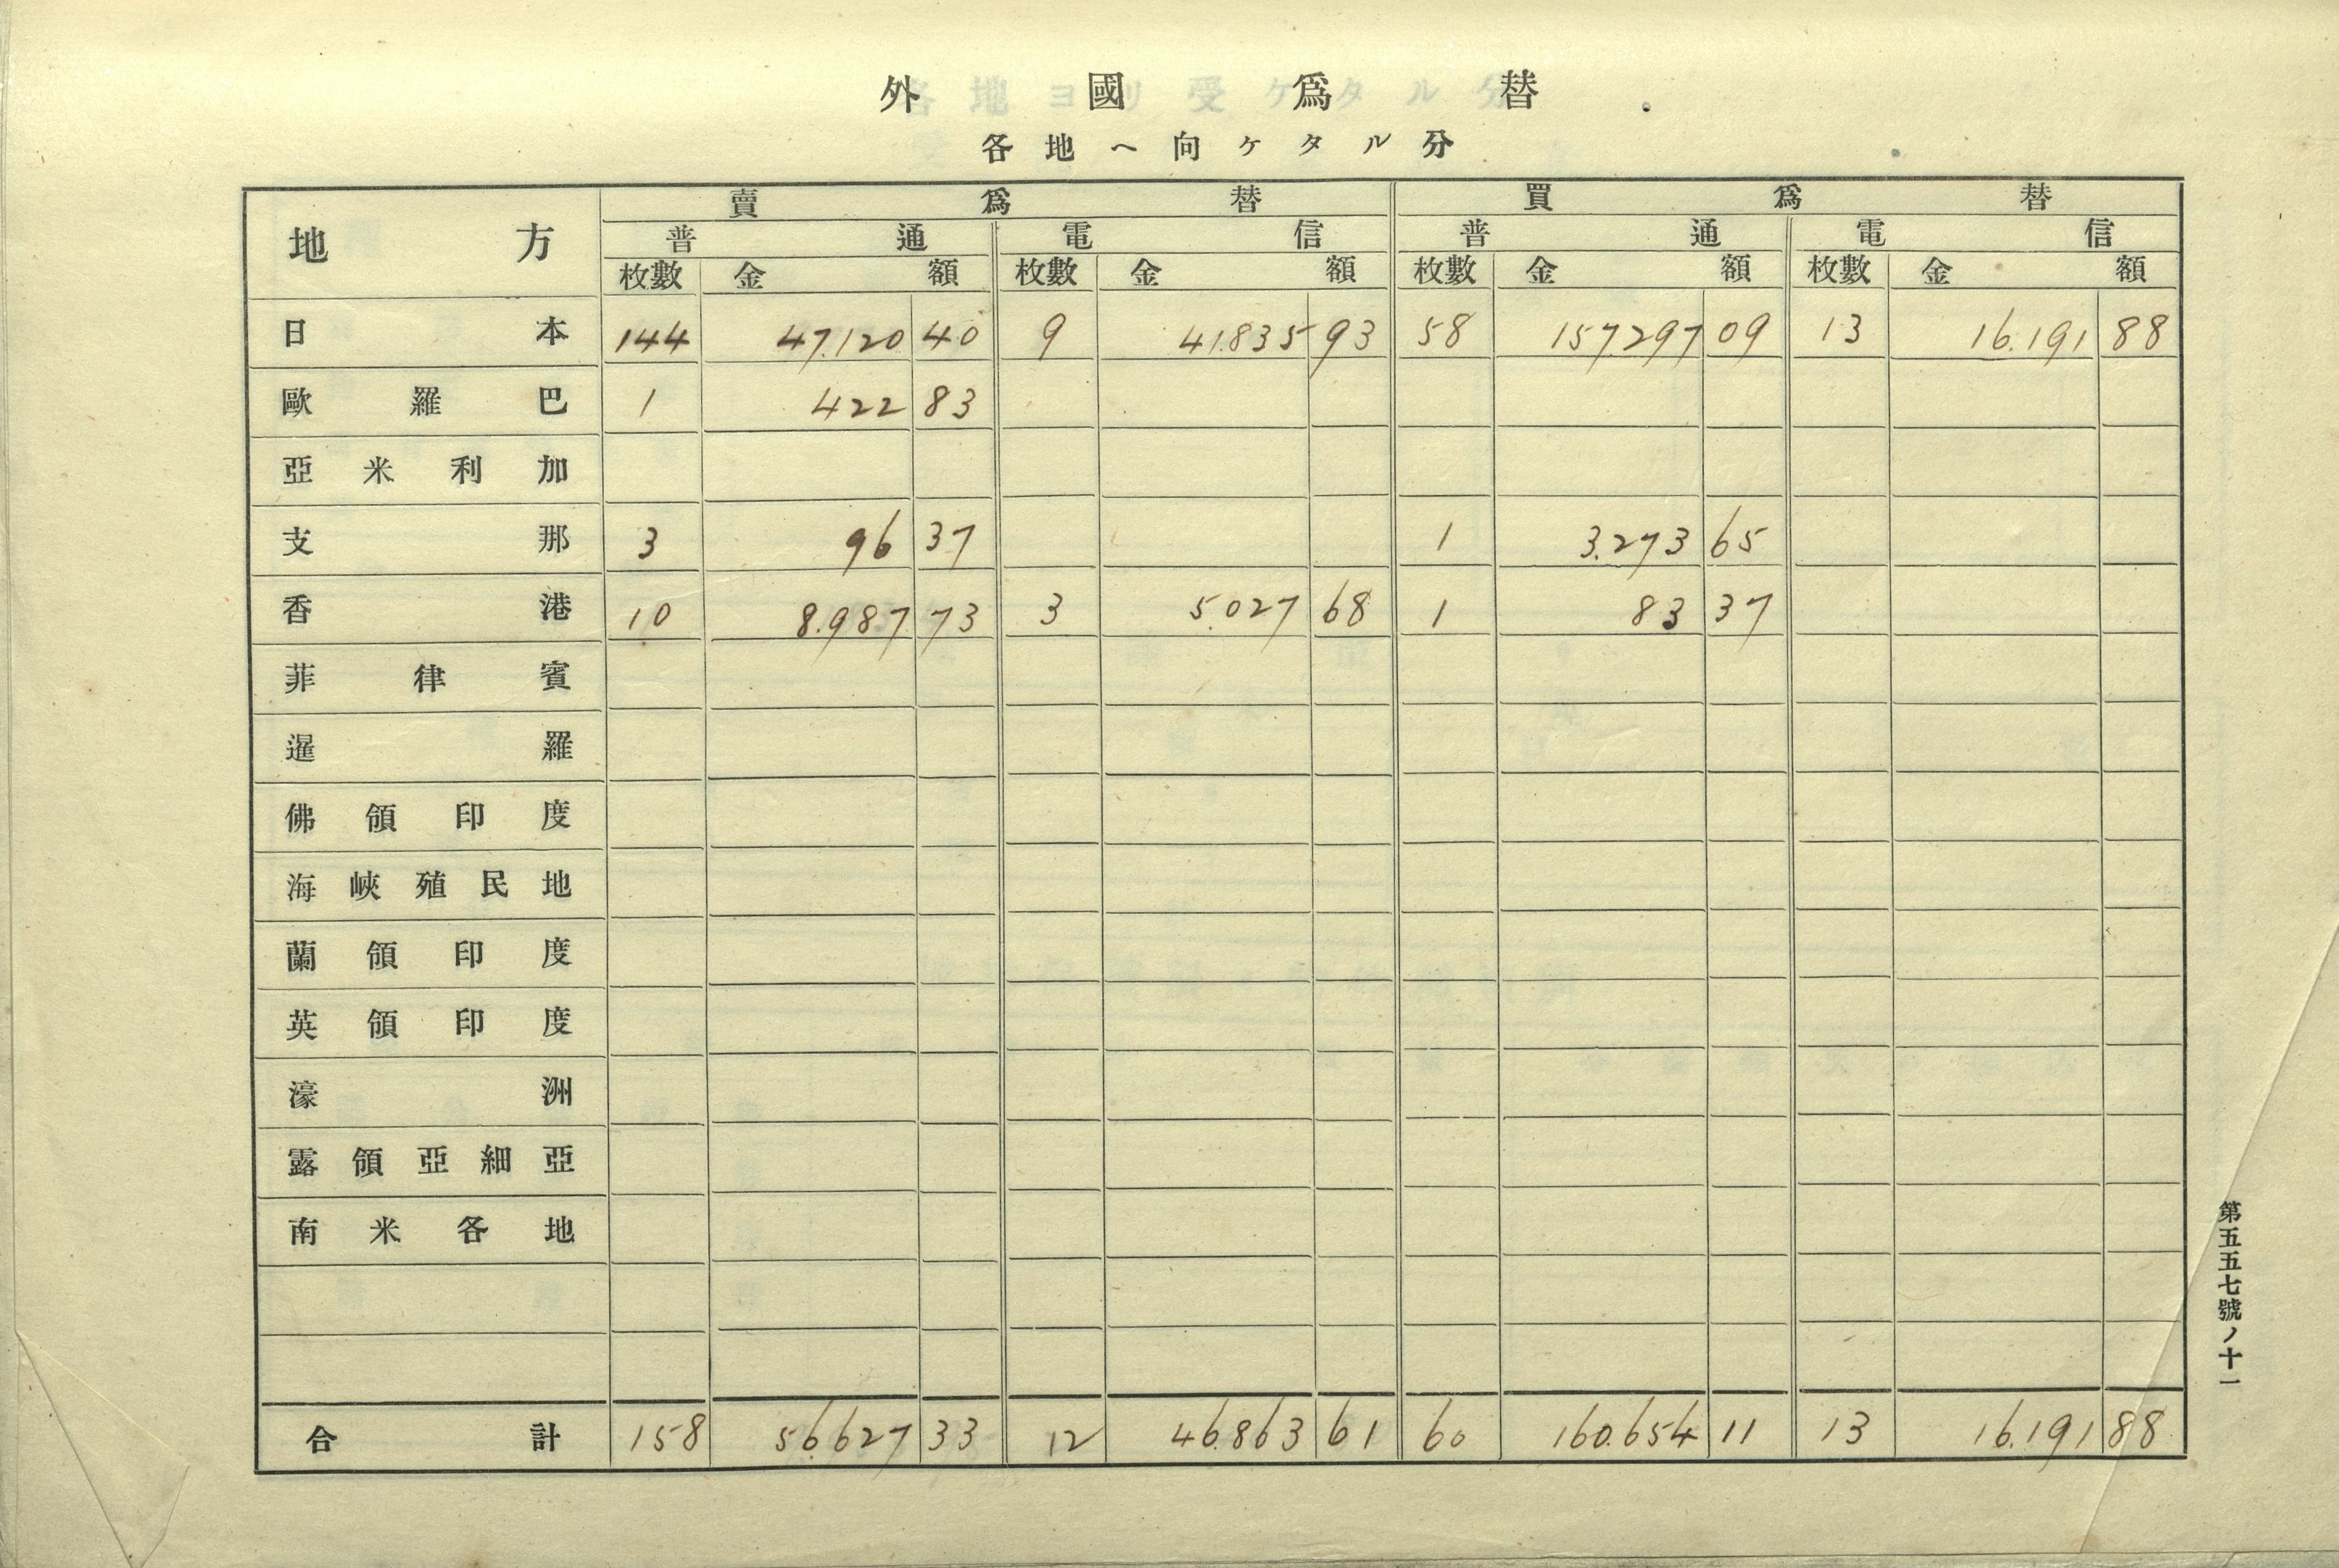 外國爲替
各地ヘ向ケタル分
地方 賣爲替 買爲替
普通 電信 普通 電信
枚數 金額 枚數 金額 枚數 金額 枚數 金額
日本 144 47.120 40 9 41.835 93 58 157.297 09 13 16.191 88
歐羅巴 1 422 83
亞米利加
支那 3 96 37 1 3.273 65
香港 10 8.987 73 3 5.027 68 1 83 37
菲律賓
暹羅
佛領印度
海峽殖民地
蘭領印度
英領印度
濠洲
露領亞細亞
南米各地
合計 158 56.627 33 12 46.863 61 60 160.654 11 13 16.191 88
第五五七號ノ十一